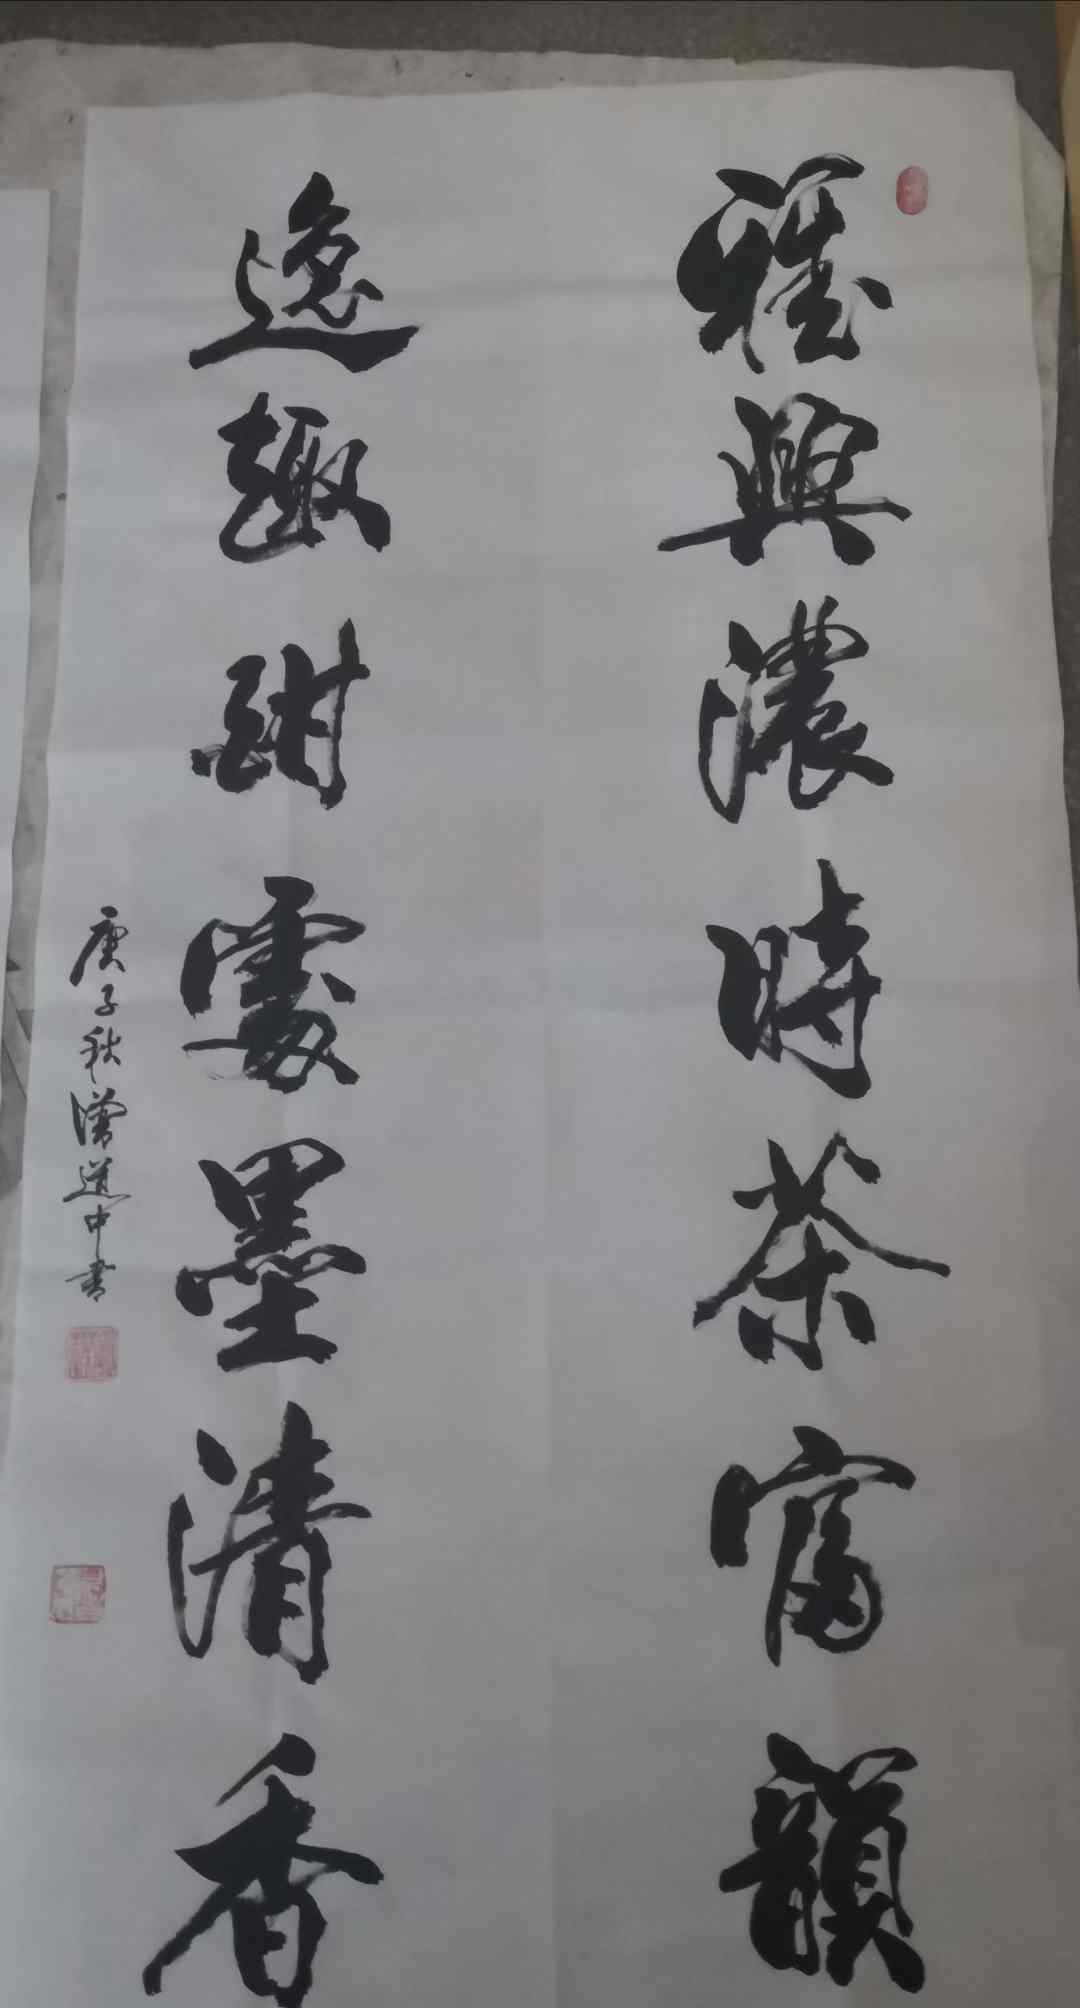 雅興濃時茶富韻
逸趣酣處墨清香
庚子秋漢道中書